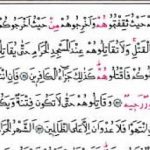 حَيْثُ ثَقِفْتُمُوهُمْ وَأَخْرِجُوهُمْ مِنْ حَيْثُ أَخْرَجُو
الْقَتْلِ وَلَا تُقَاتِلُوهُمْ عِنْدَ الْمَسْجِدِ الْحَرَامِ حَتَّى يُقَاتِلُو
قَاتَلُوكُمْ فَاقْتُلُوهُمْ كَذَلِكَ جَزَاءُ الْكَافِرِينَ فَإِنِ انْتَ
رَحِيمٌ وَقَاتِلُوهُمْ حَتَّى لَا تَكُونَ فِتْنَةٌ وَيَكُو
انْتَهَوْا فَلَا عُدْوَانَ إِلَّا عَلَى الظَّالِمِينَ الشَّهْرُ الْحَرَا